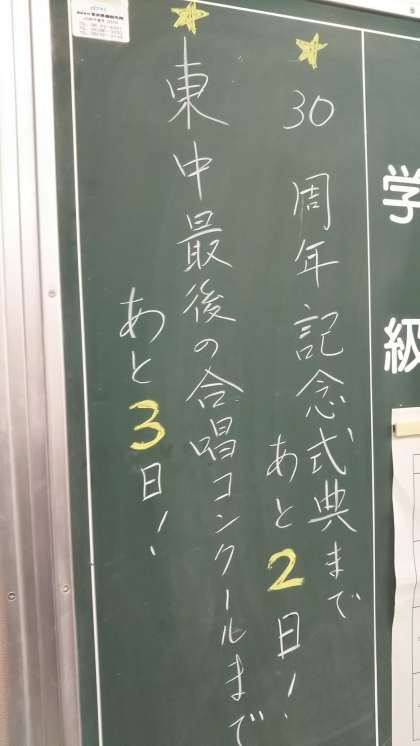 学級
☆30周年記念式典まで
あと2日!
☆東中最後の合唱コンクールまで
あと3日!